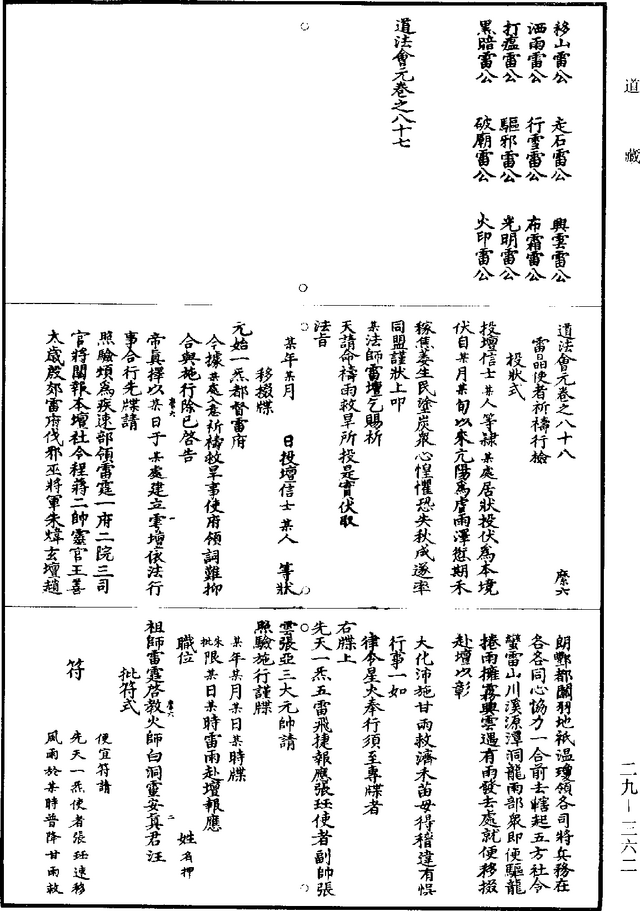 道藏
移山雷公　走石雷公　興雲雷公
洒雨雷公　行雪雷公　布霜雷公
打瘟雷公　驅邪雷公　光明雷公
黑暗雷公　破廟雷公　火印雷公
道法會元卷之八十七
道法會元卷之八十八　席六
雷晶使者祈禱行檢
投狀式
投壇信士某人等隸某處居狀投伏為本境
伏自某月某旬以來亢陽為虐雨澤愆期禾
稼焦萎生民塗炭衆心惶懼恐失秋成遂率
同盟謹狀上叩
某法師雷壇乞賜祈
天請命禱雨救旱所投是實伏取
法旨
某年某月　日投壇信士某人　等狀
移掇牒
元始一炁都督雷府
今據某處人意祈禱救旱事使府領詞難抑
合與施行除已啓告
帝真擇以某日于某處建立雲壇依法行
事合行先牒請
照驗煩為疾速部領雷霆一府二院三司
官將關報本壇社令程蔣二帥靈官王善
太歲殷郊雷府伐邪巫將軍朱煒玄壇趙
朗酆都關羽地祇溫瓊領各司將兵務在
各各同心協力一合前去轄起五方社令
蠻雷山川溪源潭洞龍雨部衆即便驅龍
捲雨擁霧興雲遇有雨發去處就便移掇
赴壇以彰
大化沛施甘雨救濟禾苗毋得稽違有悞
行事一如
律令星火奉行須至專牒者
右牒上
先天一炁五雷飛捷報應張珏使者副帥張
雲張亞三大元帥請
照驗施行謹牒
某年某月某日某時牒
朱批限某日某時雷雨赴壇報應
職位　姓　有押
祖師雷霆啓教火師白洞靈安真君汪
批符式
符
便宜符請
先天一炁使者張珏速移
風雨於某時普降甘雨救
二九－三六二